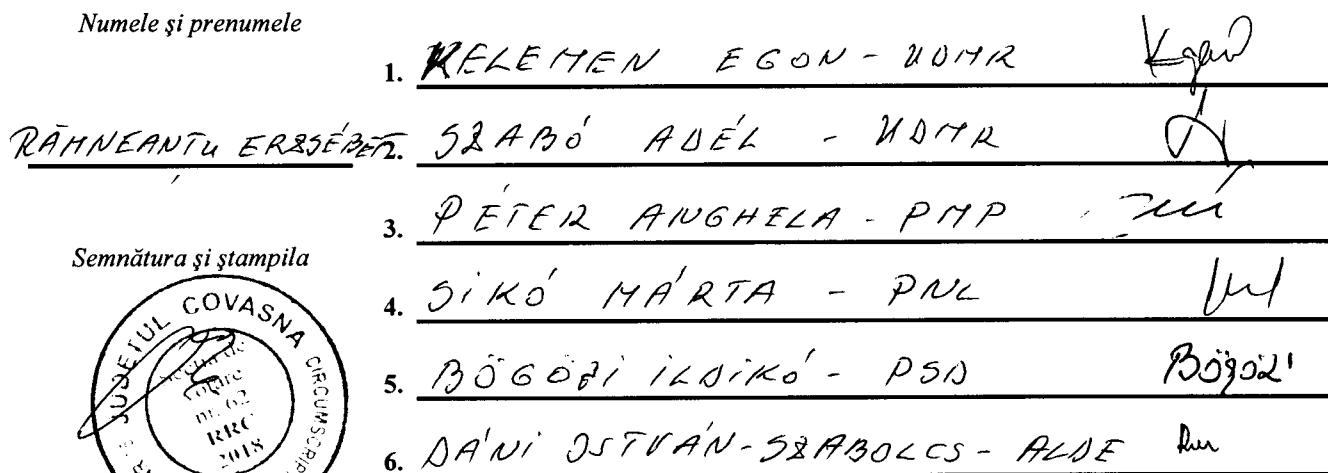 Numele şi prenumele
RĂMNEANTU ERZSÉBET
Semnătura şi ştampila
JUDEŢUL COVASNA CIRCUMSCRIP
Secţia de
votare
nr. 62
RRC
2018
1. KELEMEN EGON - UDMR
2. SZABÓ ADÉL - UDMR
3. PÉTER ANGHELA - PMP
4. SIKÓ MÁRTA - PNL
5. BÖGÖZI ILDIKÓ - PSD Bögözi
6. DÁNI ISTVÁN-SZABOLCS - ALDE